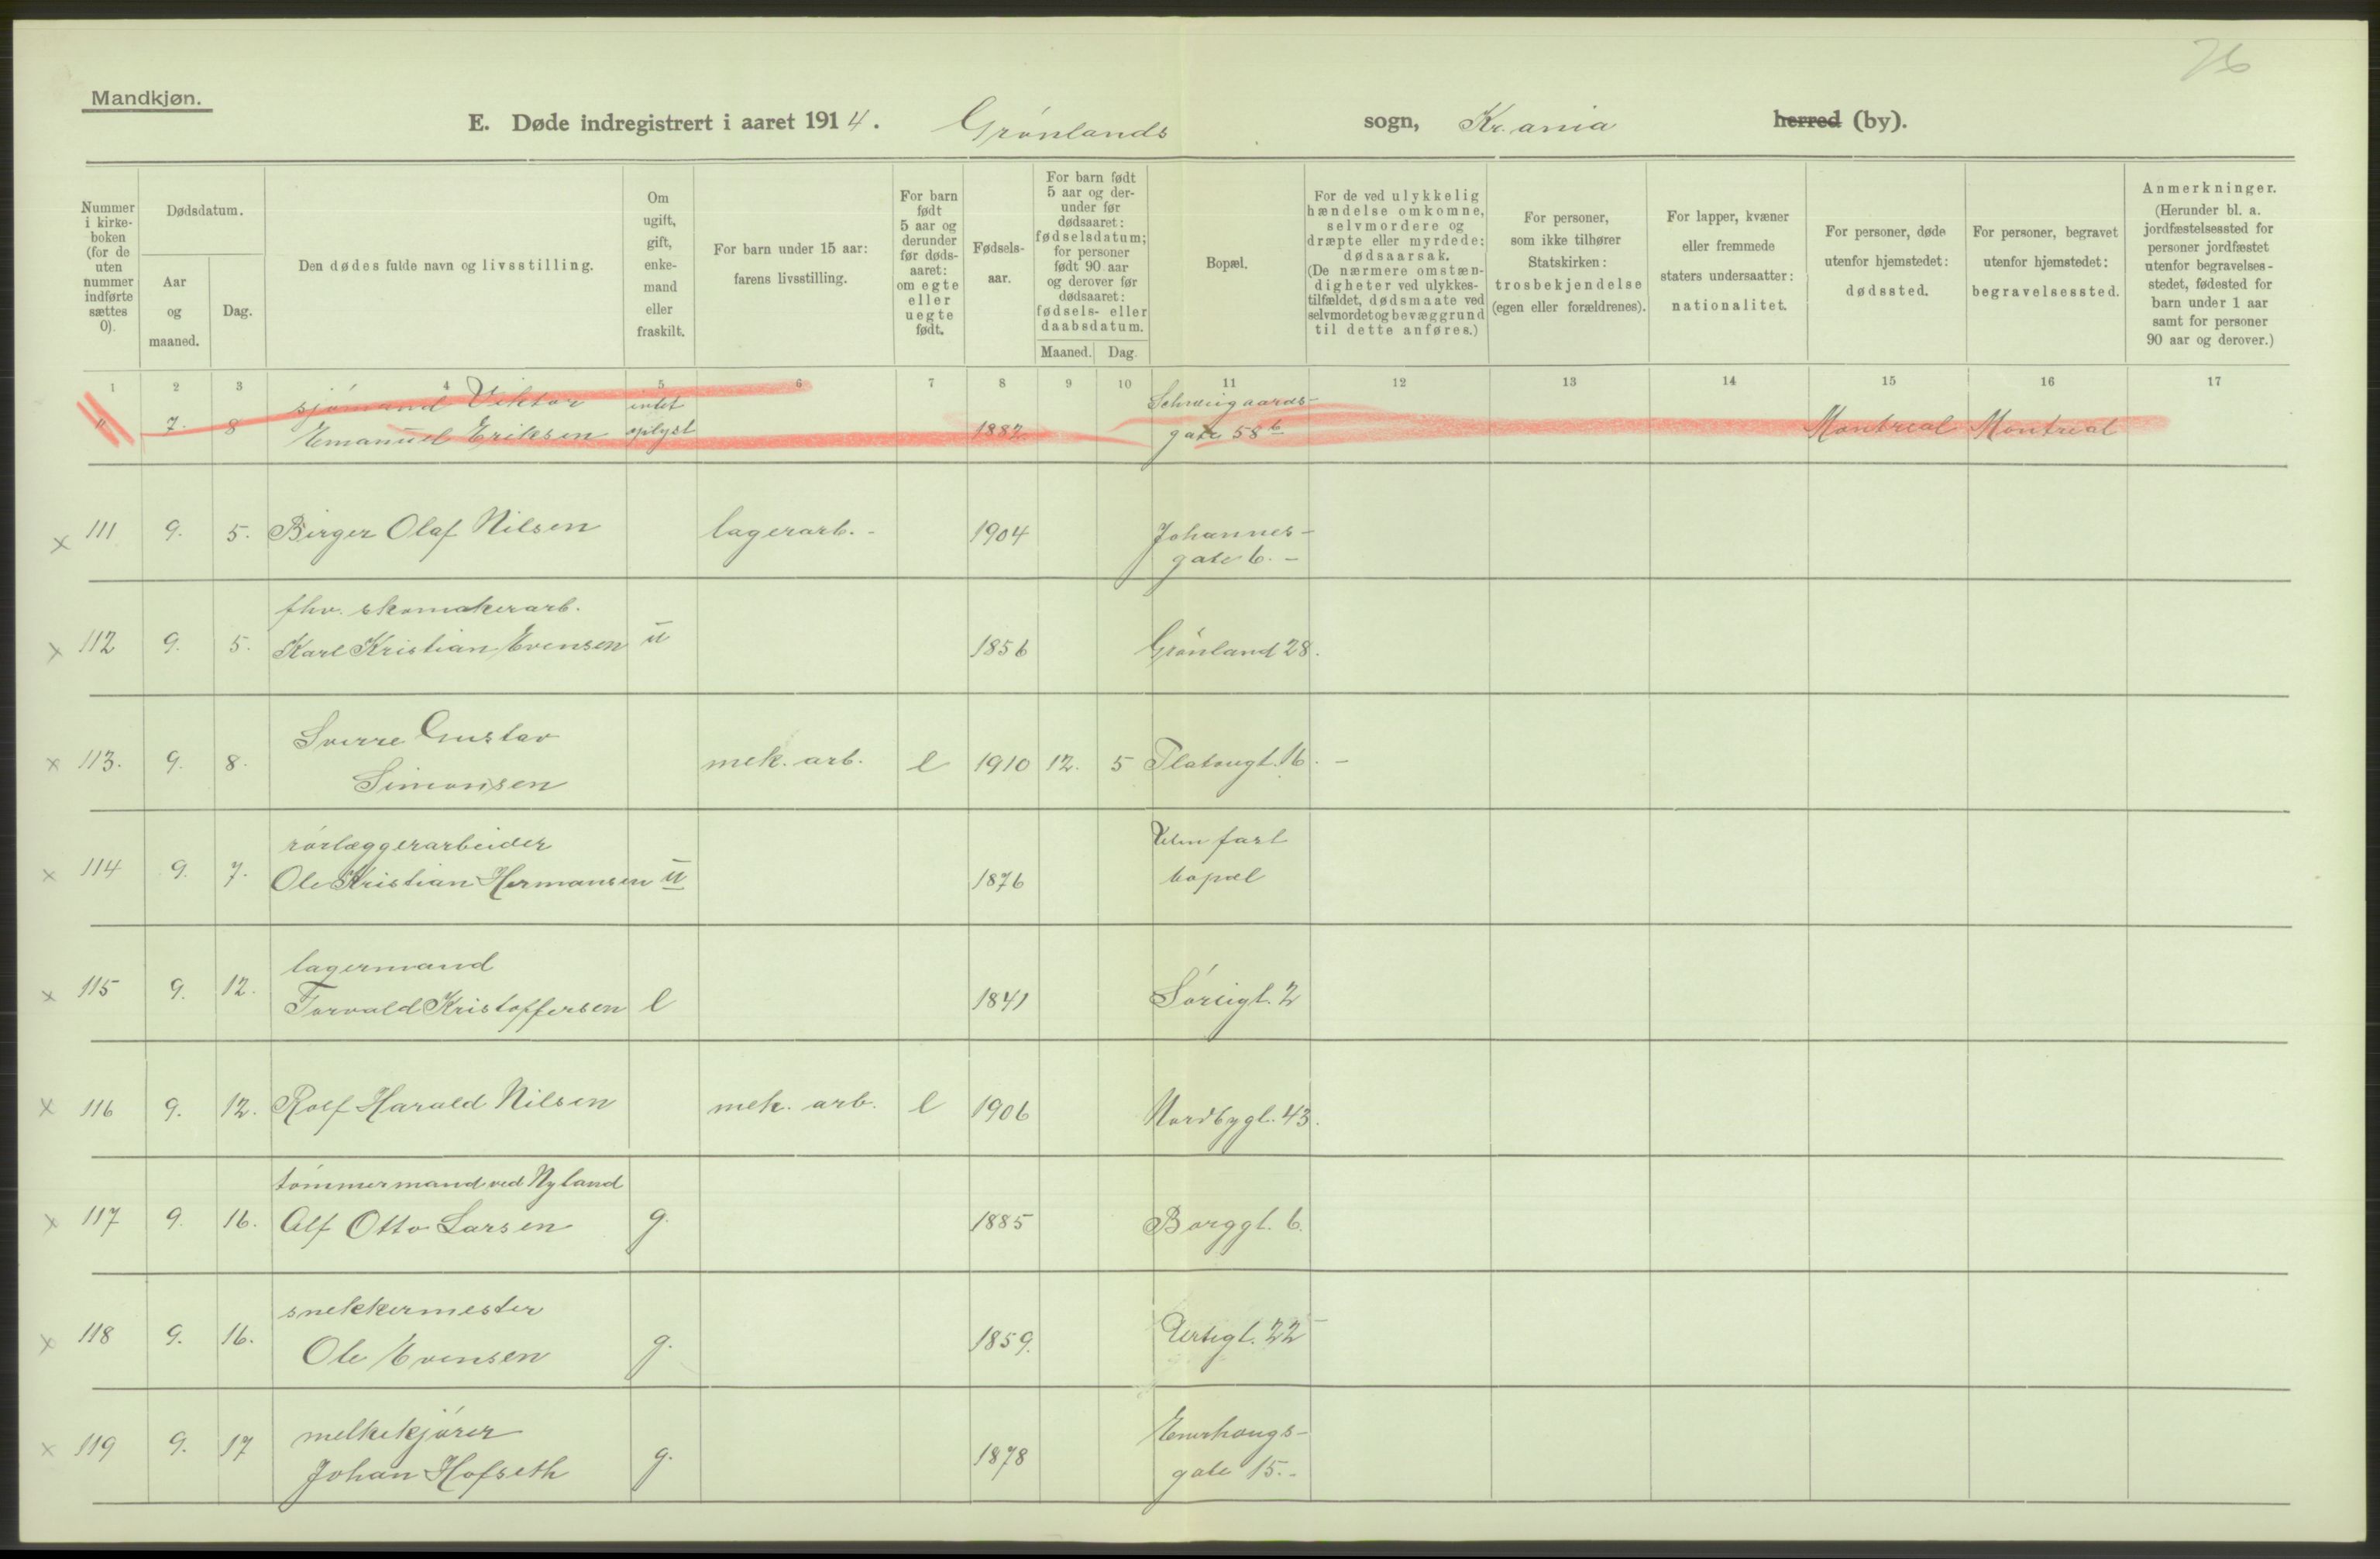 76
Mandkjøn.
E. Døde indregistrert i aaret 1914. Grønlands sogn, Kr.ania herred (by).
Nummer i kirke-boken (for de uten nummer indførte sættes 0).
Dødsdatum.
Aar og maaned.
Dag.
Den dødes fulde navn og livsstilling.
Om ugift, gift, enke-mand eller fraskilt.
For barn under 15 aar: farens livsstilling.
For barn født 5 aar og derunder før døds-aaret: om egte eller uegte født.
Fødsels-aar.
For barn født 5 aar og der-under før dødsaaret: fødselsdatum; for personer født 90 aar og derover før dødsaaret: fødsels- eller daabsdatum.
Maaned. Dag.
Bopæl.
For de ved ulykkelig hændelse omkomne, selvmordere og dræpte eller myrdede: dødsaarsak. (De nærmere omstæn-digheter ved ulykkes-tilfældet, dødsmaate ved selvmordet og bevæggrund til dette anføres.)
For personer, som ikke tilhører Statskirken: trosbekjendelse (egen eller forældrenes).
For lapper, kvæner eller fremmede staters undersaatter: nationalitet.
For personer, døde utenfor hjemstedet: dødssted.
For personer, begravet utenfor hjemstedet: begravelsessted.
Anmerkninger. (Herunder bl. a. jordfæstelsessted for personer jordfæstet utenfor begravelses-stedet, fødested for barn under 1 aar samt for personer 90 aar og derover.)
1 2 3 4 5 6 7 8 9 10 11 12 13 14 15 16 17
sjømand Viktor intet Schweigaards-
" 7. 8 Emanuel Eriksen oplyst 1887 gate 58 b Montreal Montreal
x 111 9. 5. Birger Olaf Nilsen lagerarb. - 1904 Johannes-
gate 6. -
fhv. skomakerarb.
x 112 9. 5. Karl Kristian Evensen u 1856 Grønland 28.
Sverre Gustav
x 113. 9. 8. Simonsen mek. arb. e 1910 12. 5 Platougt. 16. -
rørlæggerarbeider Uten fast
x 114 9. 7. Ole Kristian Hermansen u 1876 bopæl
lagermand
x 115 9. 12. Torvald Kristoffersen e 1841 Sørligt. 2
x 116 9. 12. Rolf Harald Nilsen mek. arb. e 1906 Nordbygt. 43.
tømmermand ved Nyland
x 117 9. 16. Alf Otto Larsen g. 1885 Borggt. 6.
snekkermester
x 118 9. 16. Ole Evensen g. 1859. Urtegt. 22
melkekjører Enerhaugs-
x 119 9. 17 Johan Hofseth g. 1878 gate 15. -